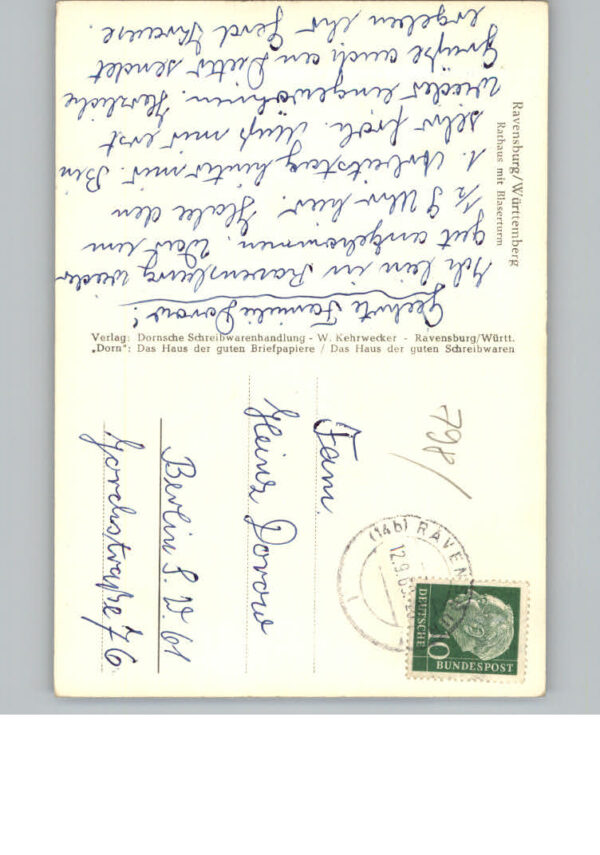 Geehrte Familie Dorow!
Ich bin in Ravensburg wieder
gut angekommen. War um
½ 9 Uhr hier. Habe den
1. Arbeitstag hinter mir. Bin
sehr froh. Muß mir erst
wieder eingewöhnen. Herzliche
Grüße auch an Dieter sendet
ergeben Ihr Gerd Krause.
Ravensburg/Württemberg
Rathaus mit Blaserturm
Verlag: Dornsche Schreibwarenhandlung - W. Kehrwecker - Ravensburg/Württ.
„Dorn": Das Haus der guten Briefpapiere / Das Haus der guten Schreibwaren
798/
Fam.
Heinz Dorow
Berlin S.W. 61
Yorckstraße 76
(14b) RAVEN
12.9.6
DEUTSCHE
10
BUNDESPOST